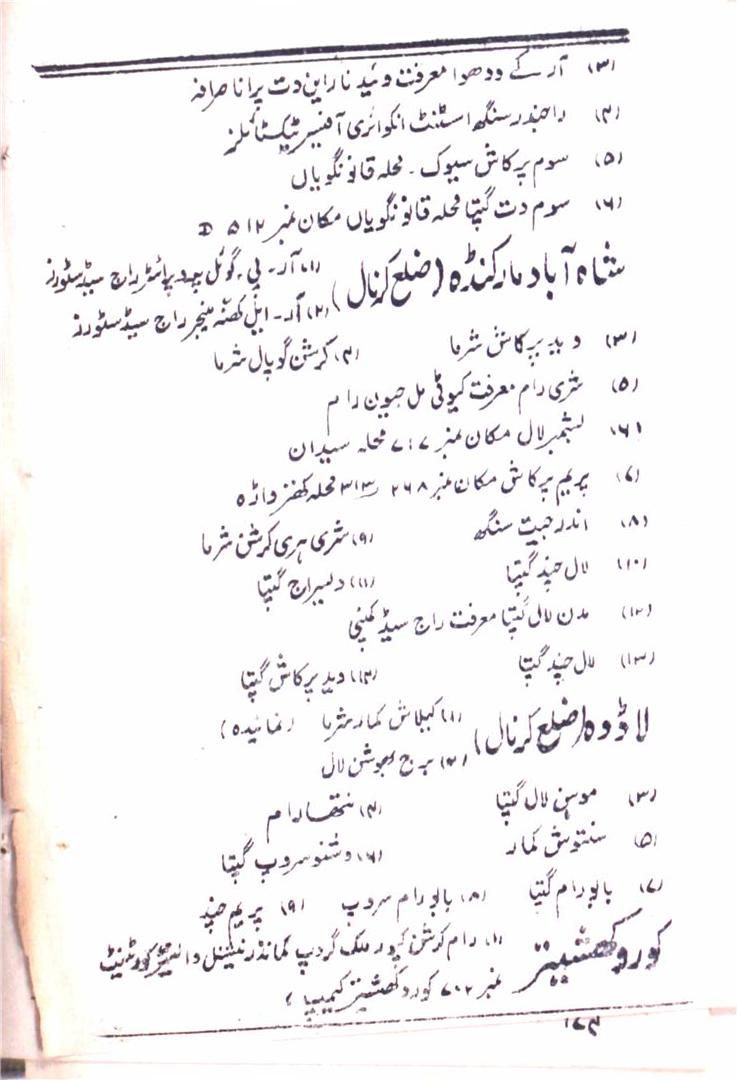 (۳) آر کے ودھوا معرفت وئید نارائن دت پرانا صرافہ
(۴) راجندر سنگھ اسٹنٹ انکوائری آفیسر ٹیکسٹائلز
(۵) سوم پرکاش سیوک ۔ محلہ قانونگویاں
(۶) سوم دت گپتا محلہ قانونگویاں مکان نمبر ۵۱۲ D
شاہ آباد مارکنڈہ (ضلع کرنال) (۱) آر۔ پی۔ گوئل پروپرائٹر راج سیڈ سٹورز
(۲) آر۔ ایل کھنہ منیجر راج سیڈ سٹورز
(۳) وید پرکاش شرما (۴) کرشن گوپال شرما
(۵) شری رام معرفت کیوٹی مل جیون رام
(۶) بشمبر لال مکان نمبر ۷۱۷ محلہ سیدان
(۷) پریم پرکاش مکان نمبر ۲۶۸ / ۳۱۳ محلہ کھنڑواڑہ
(۸) اندرجیت سنگھ (۹) شری ہری کرشن شرما
(۱۰) لال چند گپتا (۱۱) دیسراج گپتا
(۱۲) مدن لال گپتا معرفت راج سیڈ کمپنی
(۱۳) لال چند گپتا (۱۴) وید پرکاش گپتا
لاڈوہ (ضلع کرنال) (۱) کیلاش کمار شرما (نمائیدہ)
(۲) برج بھوشن لال
(۳) موہن لال گپتا (۴) نتھا رام
(۵) سنتوش کمار (۶) وشنو سروپ گپتا
(۷) بابو رام گپتا (۸) بابو رام سروپ (۹) پریم چند
کوروکھشیتر (۱) رام کرشن کپور ملک گروپ کمانڈر نیشنل والنٹیر کورٹنیٹ
نمبر ۷۰۲ کوروکھشیتر کیمپ
۱۷۴